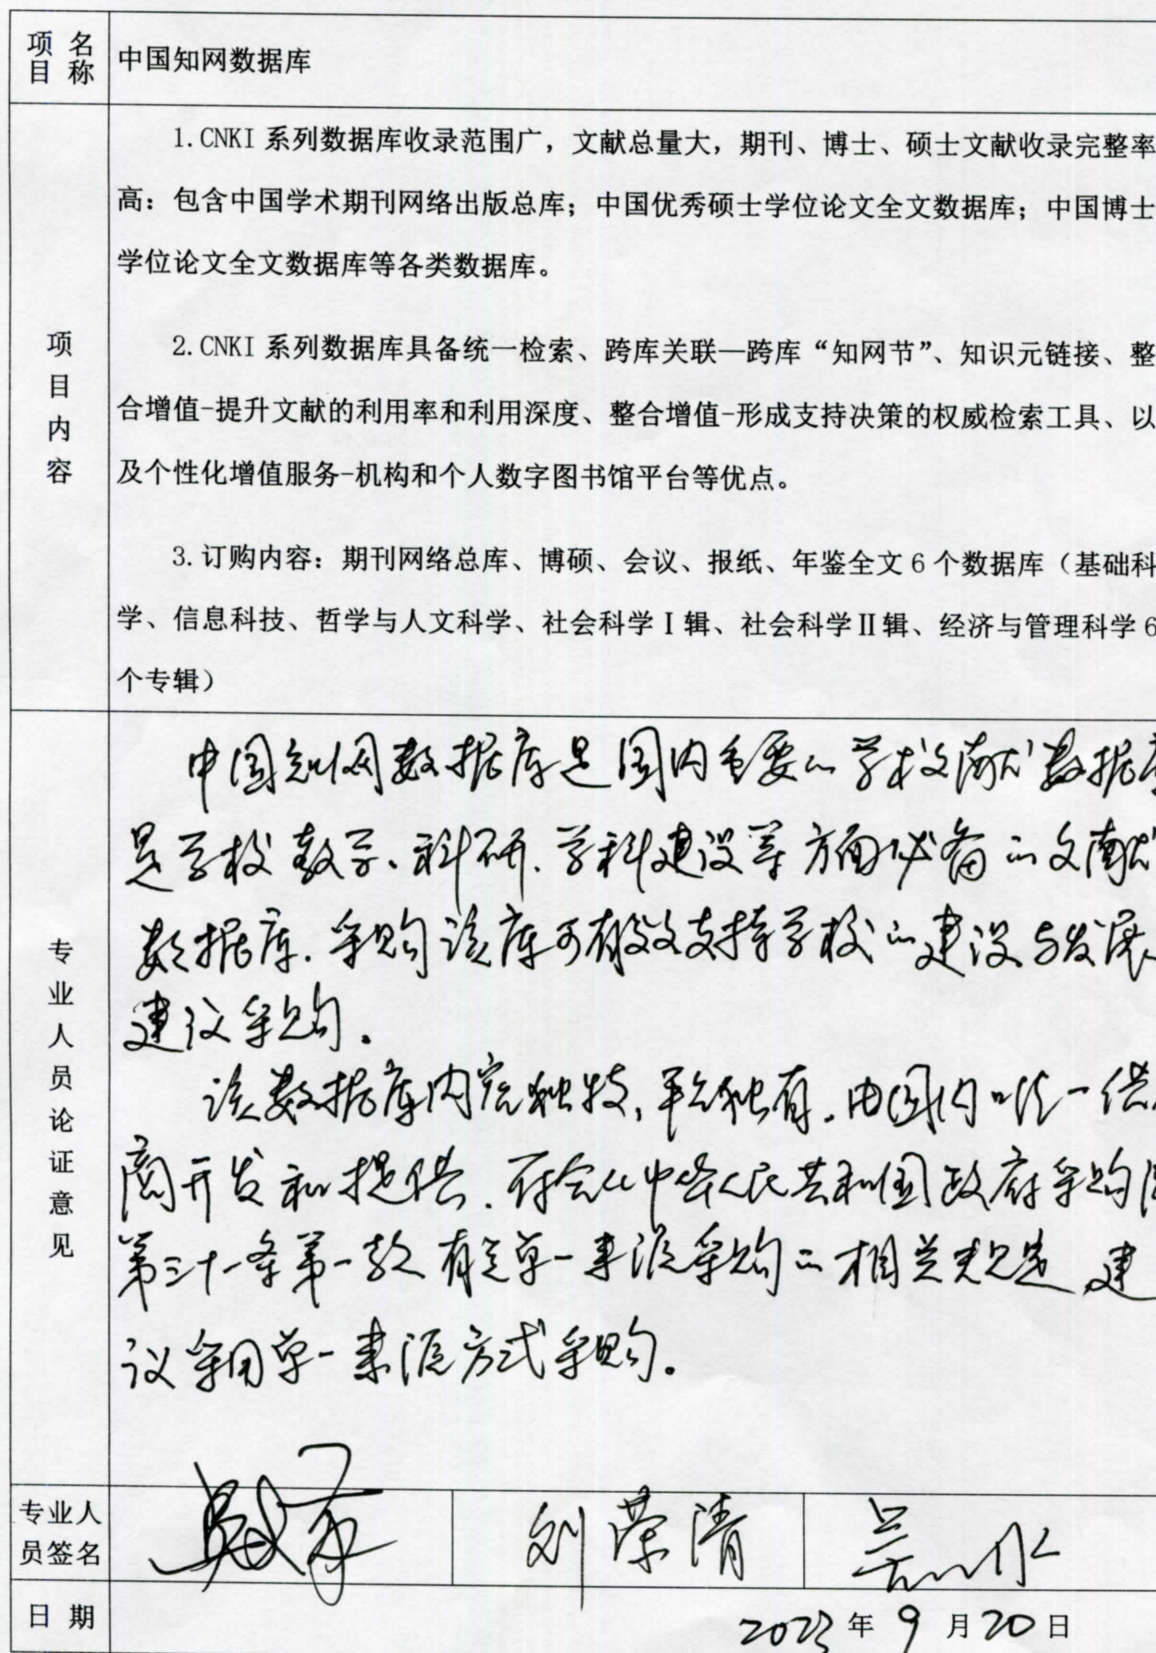 项目名称
中国知网数据库
项目内容
1.CNKI 系列数据库收录范围广，文献总量大，期刊、博士、硕士文献收录完整率
高：包含中国学术期刊网络出版总库；中国优秀硕士学位论文全文数据库；中国博士
学位论文全文数据库等各类数据库。
2.CNKI 系列数据库具备统一检索、跨库关联—跨库“知网节”、知识元链接、整
合增值-提升文献的利用率和利用深度、整合增值-形成支持决策的权威检索工具、以
及个性化增值服务-机构和个人数字图书馆平台等优点。
3.订购内容：期刊网络总库、博硕、会议、报纸、年鉴全文 6 个数据库（基础科
学、信息科技、哲学与人文科学、社会科学Ⅰ辑、社会科学Ⅱ辑、经济与管理科学 6
个专辑）
专业人员论证意见
中国知网数据库是国内重要的学术文献数据库
是学校教学、科研、学科建设等方面必备的文献
数据库.采购该库可有效支持学校的建设与发展
建议采购。
该数据库内容独特,平台独有.由国内唯一供
商开发和提供.符合《中华人民共和国政府采购法
第三十一条第一款有关单一来源采购的相关规定,建
议采用单一来源方式采购。
专业人员签名
刘荣清
日期
2023年9月20日